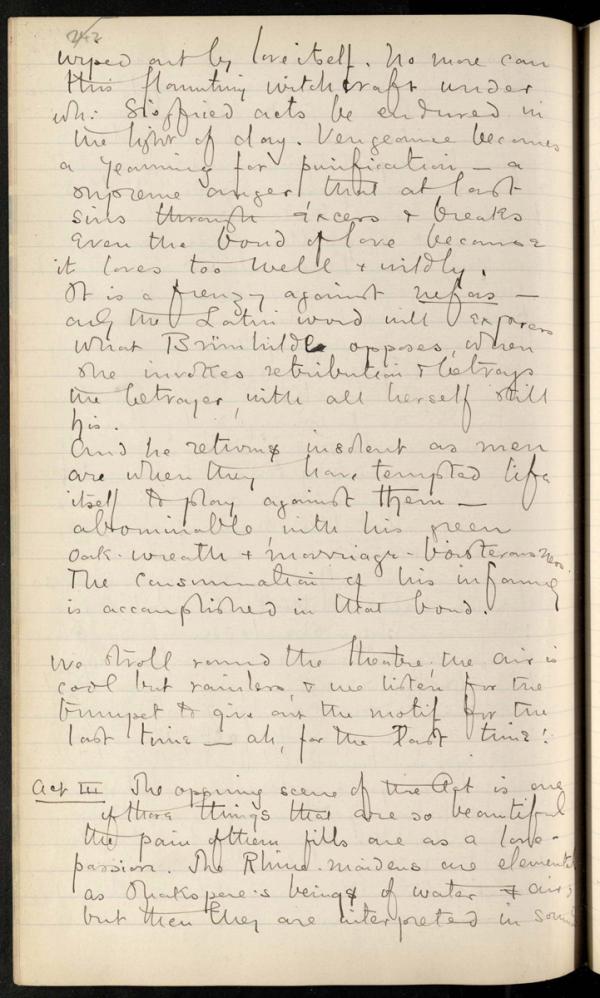 242
wiped out by love itself. No more can
this flaunting witchcraft under
wh: Siegfried acts be endured in
the light of day. Vengeance becomes
a yearning for purification — a
supreme anger that at last
sins through excess & breaks
even the bond of love because
it loves too well & wildly.
It is a frenzy against nefas —
only the Latin word will express
what Brünhilde opposes, when
she invokes retribution & betrays
the betrayer, with all herself still
his.
And he returns insolent as men
are when they have tempted life
itself to play against them —
abominable, with his green
oak-wreath & marriage-boisterousness.
The consummation of his infamy
is accomplished in that bond.
We stroll round the theatre; the air is
cool but rainless, & we listen for the
trumpet to give out the motif for the
last time — ah, for the last time!
Act III The opening scene of the Act is one
of those things that are so beautiful
the pain of them fills one as a love-
passion. The Rhine-maidens are elemental
as Shakspere's beings of water & air;
but then they are interpreted in sound